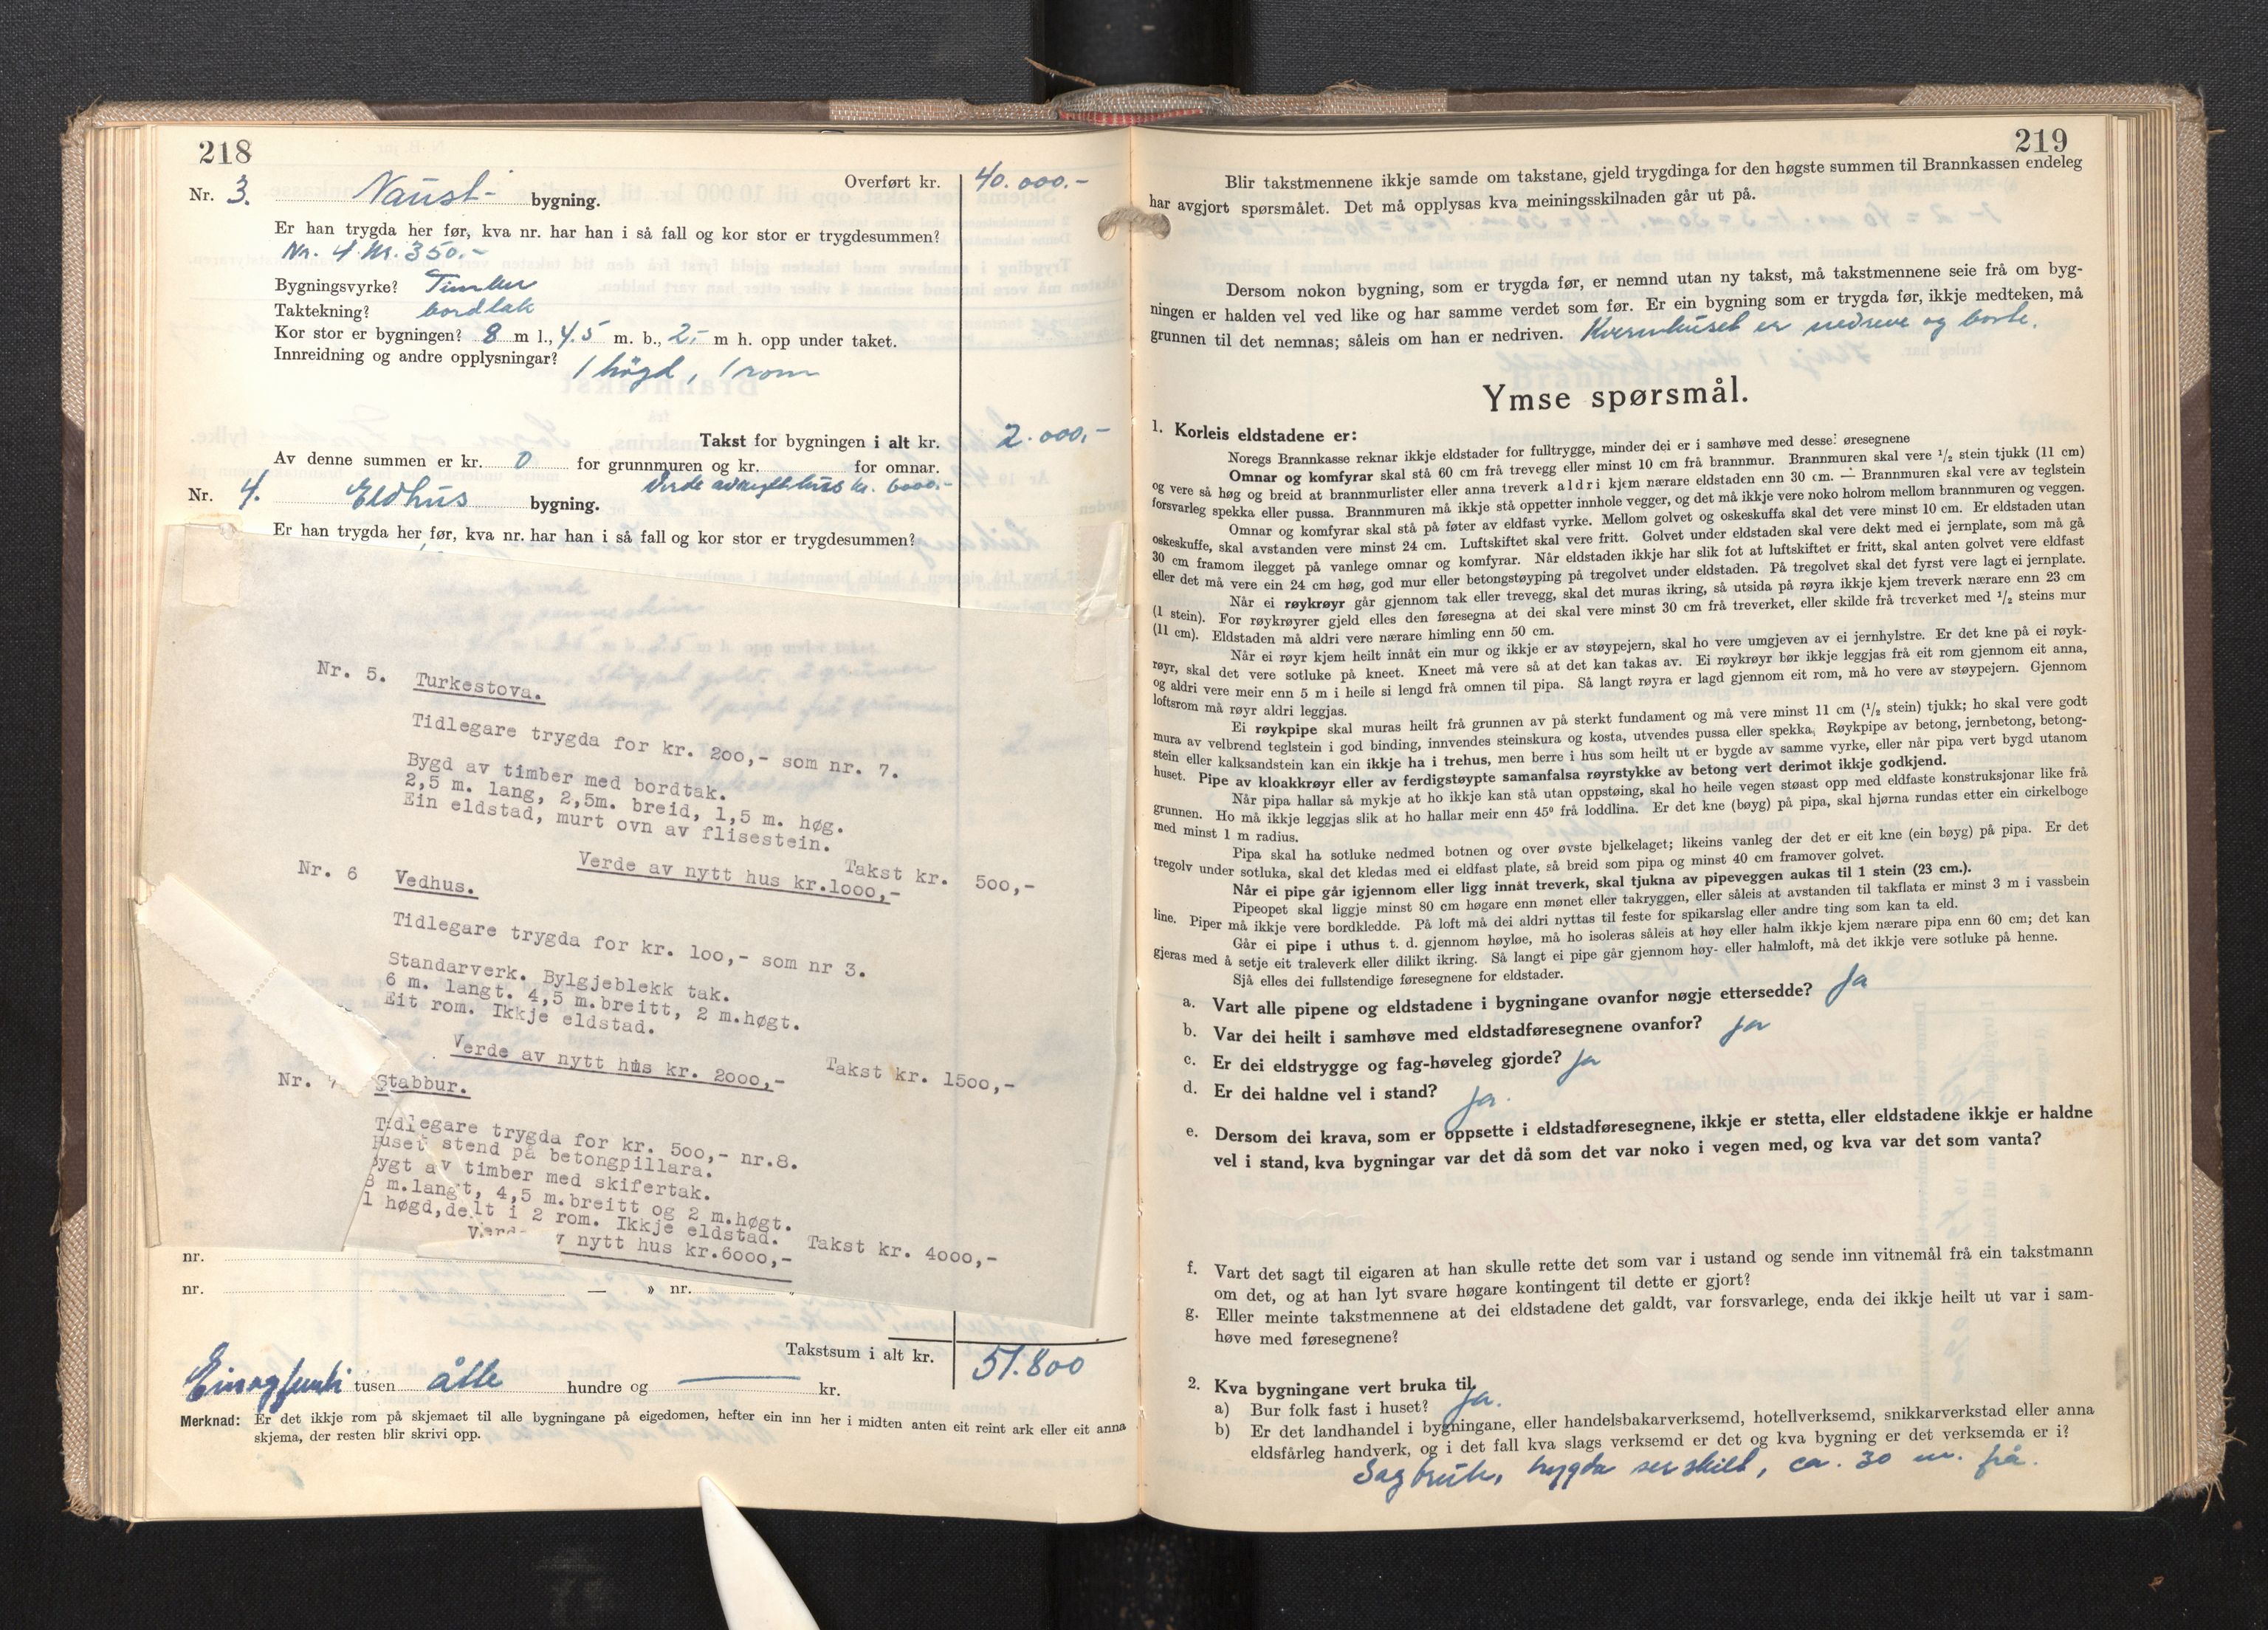 218
Overført kr. 40.000.-
Nr. 3. Naust- bygning.
Er han trygda her før, kva nr. har han i så fall og kor stor er trygdesummen?
Nr. 4 kr. 350.-
Bygningsvyrke? Timber
Taktekning? bordtak
Kor stor er bygningen? 8 m l., 4.5 m. b., 2,- m h. opp under taket.
Innreidning og andre opplysningar? 1 høgd, 1 rom
Takst for bygningen i alt kr. 2.000,-
Av denne summen er kr. 0 for grunnmuren og kr. for omnar.
Verde av nytt hus kr. 6000.-
Nr. 4. Eldhus bygning.
Er han trygda her før, kva nr. har han i så fall og kor stor er trygdesummen?
Nr. 5. Turkestova.
Tidlegare trygda for kr. 200,- som nr. 7.
Bygd av timber med bordtak.
2,5 m. lang, 2,5m. breid, 1,5 m. høg.
Ein eldstad, murt ovn av flisestein.
Takst kr. 500,-
Verde av nytt hus kr.1000,-
Nr. 6 Vedhus.
Tidlegare trygda for kr. 100,- som nr 3.
Standarverk. Bylgjeblekk tak.
6 m. langt. 4,5 m.breitt, 2 m.høgt.
Eit rom. Ikkje eldstad.
Verde av nytt hus kr. 2000,- Takst kr. 1500,-
Nr. Stabbur.
Tidlegare trygda for kr. 500,- nr.8.
Huset stend på betongpillara.
Bygt av timber med skifertak.
8 m.langt, 4,5 m.breitt og 2 m.høgt.
1 høgd,delt i 2 rom. Ikkje eldstad. Takst kr. 4000,-
nytt hus kr.6000,-
nr.
nr. — » nr.
Takstsum i alt kr. 51.800
Einogfemti tusen åtte hundre og — kr.
Merknad: Er det ikkje rom på skjemaet til alle bygningane på eigedomen, hefter ein inn her i midten anten eit reint ark eller eit anna
skjema, der resten blir skrivi opp.
219
Blir takstmennene ikkje samde om takstane, gjeld trygdinga for den høgste summen til Brannkassen endeleg
har avgjort spørsmålet. Det må opplysas kva meiningsskilnaden går ut på.
Dersom nokon bygning, som er trygda før, er nemnd utan ny takst, må takstmennene seie frå om byg-
ningen er halden vel ved like og har samme verdet som før. Er ein bygning som er trygda før, ikkje medteken, må
grunnen til det nemnas; såleis om han er nedriven. Kvernhuset er nedreve og borte.
Ymse spørsmål.
1. Korleis eldstadene er:
Noregs Brannkasse reknar ikkje eldstader for fulltrygge, minder dei er i samhøve med desse: øresegnene
Omnar og komfyrar skal stå 60 cm frå trevegg eller minst 10 cm frå brannmur. Brannmuren skal vere 1/2 stein tjukk (11 cm)
og vere så høg og breid at brannmurlister eller anna treverk aldri kjem nærare eldstaden enn 30 cm. — Brannmuren skal vere av teglstein
forsvarleg spekka eller pussa. Brannmuren må ikkje stå oppetter innhole vegger, og det må ikkje vere noko holrom mellom brannmuren og veggen.
Omnar og komfyrar skal stå på føter av eldfast vyrke. Mellom golvet og oskeskuffa skal det vere minst 10 cm. Er eldstaden utan
oskeskuffe, skal avstanden vere minst 24 cm. Luftskiftet skal vere fritt. Golvet under eldstaden skal vere dekt med ei jernplate, som må gå
30 cm framom ilegget på vanlege omnar og komfyrar. Når eldstaden ikkje har slik fot at luftskiftet er fritt, skal anten golvet vere eldfast
eller det må vere ein 24 cm høg, god mur eller betongstøyping på tregolvet under eldstaden. På tregolvet skal det fyrst vere lagt ei jernplate.
Når ei røykrøyr går gjennom tak eller trevegg, skal det muras ikring, så utsida på røyra ikkje kjem treverk nærare enn 23 cm
(1 stein). For røykrøyrer gjeld elles den føresegna at dei skal vere minst 30 cm frå treverket, eller skilde frå treverket med 1/2 steins mur
(11 cm). Eldstaden må aldri vere nærare himling enn 50 cm.
Når ei røyr kjem heilt innåt ein mur og ikkje er av støypejern, skal ho vere umgjeven av ei jernhylstre. Er det kne på ei røyk-
røyr, skal det vere sotluke på kneet. Kneet må vere så at det kan takas av. Ei røykrøyr bør ikkje leggjas frå eit rom gjennom eit anna,
og aldri vere meir enn 5 m i heile si lengd frå omnen til pipa. Så langt røyra er lagd gjennom eit rom, må ho vere av støypejern. Gjennom
loftsrom må røyr aldri leggjas.
Ei røykpipe skal muras heilt frå grunnen av på sterkt fundament og må vere minst 11 cm (1/2 stein) tjukk; ho skal vere godt
mura av velbrend teglstein i god binding, innvendes steinskura og kosta, utvendes pussa eller spekka. Røykpipe av betong, jernbetong, betong-
stein eller kalksandstein kan ein ikkje ha i trehus, men berre i hus som heilt ut er bygde av samme vyrke, eller når pipa vert bygd utanom
huset. Pipe av kloakkrøyr eller av ferdigstøypte samanfalsa røyrstykke av betong vert derimot ikkje godkjend.
Når pipa hallar så mykje at ho ikkje kan stå utan oppstøing, skal ho heile vegen støast opp med eldfaste konstruksjonar like frå
grunnen. Ho må ikkje leggjas slik at ho hallar meir enn 45° frå loddlina. Er det kne (bøyg) på pipa, skal hjørna rundas etter ein cirkelboge
med minst 1 m radius.
Pipa skal ha sotluke nedmed botnen og over øvste bjelkelaget; likeins vanleg der det er eit kne (ein bøyg) på pipa. Er det
tregolv under sotluka, skal det kledas med ei eldfast plate, så breid som pipa og minst 40 cm framover golvet.
Når ei pipe går igjennom eller ligg innåt treverk, skal tjukna av pipeveggen aukas til 1 stein (23 cm.).
Pipeopet skal liggje minst 80 cm høgare enn mønet eller takryggen, eller såleis at avstanden til takflata er minst 3 m i vassbein
line. Piper må ikkje vere bordkledde. På loft må dei aldri nyttas til feste for spikarslag eller andre ting som kan ta eld.
Går ei pipe i uthus t. d. gjennom høyløe, må ho isoleras såleis at høy eller halm ikkje kjem nærare pipa enn 60 cm; det kan
gjeras med å setje eit traleverk eller dilikt ikring. Så langt ei pipe går gjennom høy- eller halmloft, må det ikkje vere sotluke på henne.
Sjå elles dei fullstendige føresegnene for eldstader.
a. Vart alle pipene og eldstadene i bygningane ovanfor nøgje ettersedde? Ja
b. Var dei heilt i samhøve med eldstadføresegnene ovanfor? Ja
c. Er dei eldstrygge og fag-høveleg gjorde? Ja
d. Er dei haldne vel i stand? Ja.
e. Dersom dei krava, som er oppsette i eldstadføresegnene, ikkje er stetta, eller eldstadene ikkje er haldne
vel i stand, kva bygningar var det då som det var noko i vegen med, og kva var det som vanta?
f. Vart det sagt til eigaren at han skulle rette det som var i ustand og sende inn vitnemål frå ein takstmann
om det, og at han lyt svare høgare kontingent til dette er gjort?
g. Eller meinte takstmennene at dei eldstadene det galdt, var forsvarlege, enda dei ikkje heilt ut var i sam-
høve med føresegnene?
2. Kva bygningane vert bruka til.
a) Bur folk fast i huset? Ja.
b) Er det landhandel i bygningane, eller handelsbakarverksemd, hotellverksemd, snikkarverkstad eller anna
eldsfårleg handverk, og i det fall kva slags verksemd er det og kva bygning er det verksemda er i?
Sagbruk, trygda serskilt, ca. 30 m. frå.